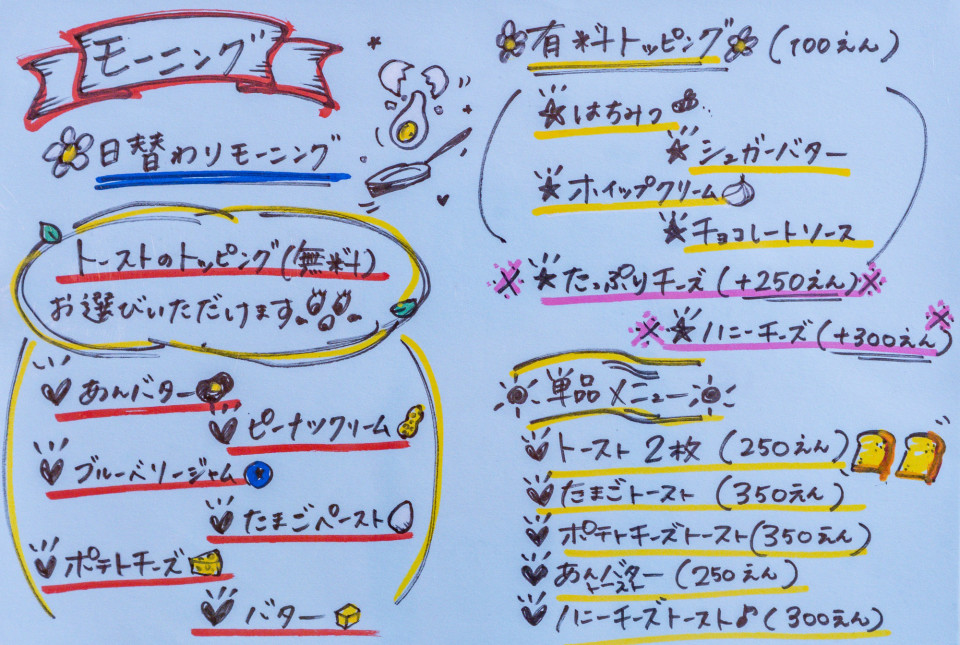 モーニング
日替わりモーニング
トーストのトッピング(無料)
お選びいただけます。
あんバター
ピーナツクリーム
ブルーベリージャム
たまごペースト
ポテトチーズ
バター
有料トッピング(100えん)
★はちみつ
★シュガーバター
★ホイップクリーム
★チョコレートソース
★たっぷりチーズ(+250えん)
★ハニーチーズ(+300えん)
単品メニュー
トースト2枚(250えん)
たまごトースト(350えん)
ポテトチーズトースト(350えん)
あんバタートースト(250えん)
ハニーチーズトースト♪(300えん)